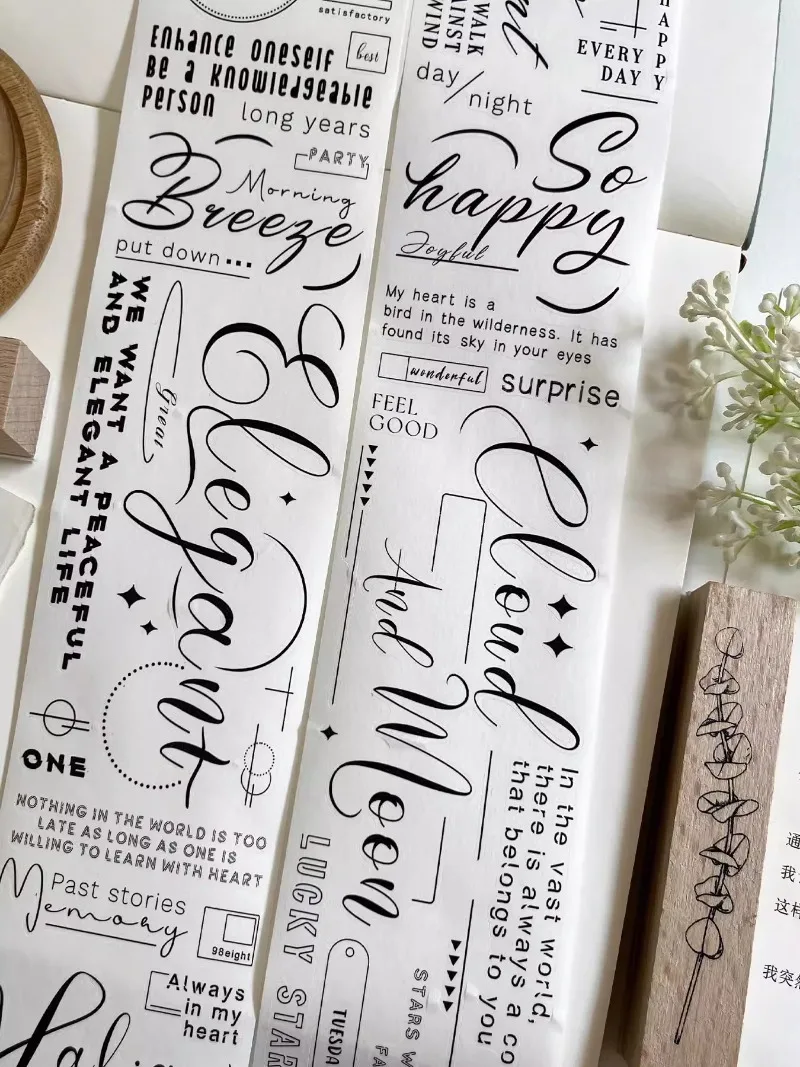 satisfactory
Enhance oneself
Be a Knowledgeable
Person
best
long years
PARTY
Morning
Breeze
put down...
WE WANT A PEACEFUL
AND ELEGANT LIFE
Great
Elegant
ONE
NOTHING IN THE WORLD IS TOO
LATE AS LONG AS ONE IS
WILLING TO LEARN WITH HEART
Past stories
Memory
98eight
Always
in my
heart
WALK
AINST
WIND
EVERY
DAY
HAPPY
day/night
So
happy
Joyful
My heart is a
bird in the wilderness. It has
found its sky in your eyes
wonderful
surprise
FEEL
GOOD
Cloud
And Moon
In the vast world,
there is always a co
that belongs to you
LUCKY STAR
TUESDA
STARS W
FA
我
这样
我突然